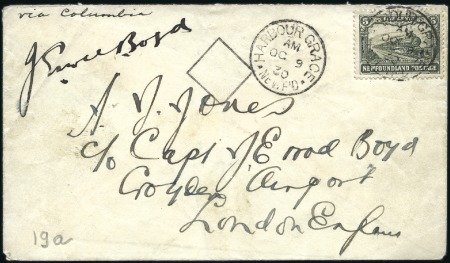 via Columbia
J Errol Boyd
HARBOUR GRACE
AM
OC 9
30
NEWF'D
NEWFOUNDLAND POSTAGE
A. J. Jones
c/o Capt J Errol Boyd
Croyden Airport
London England
19a